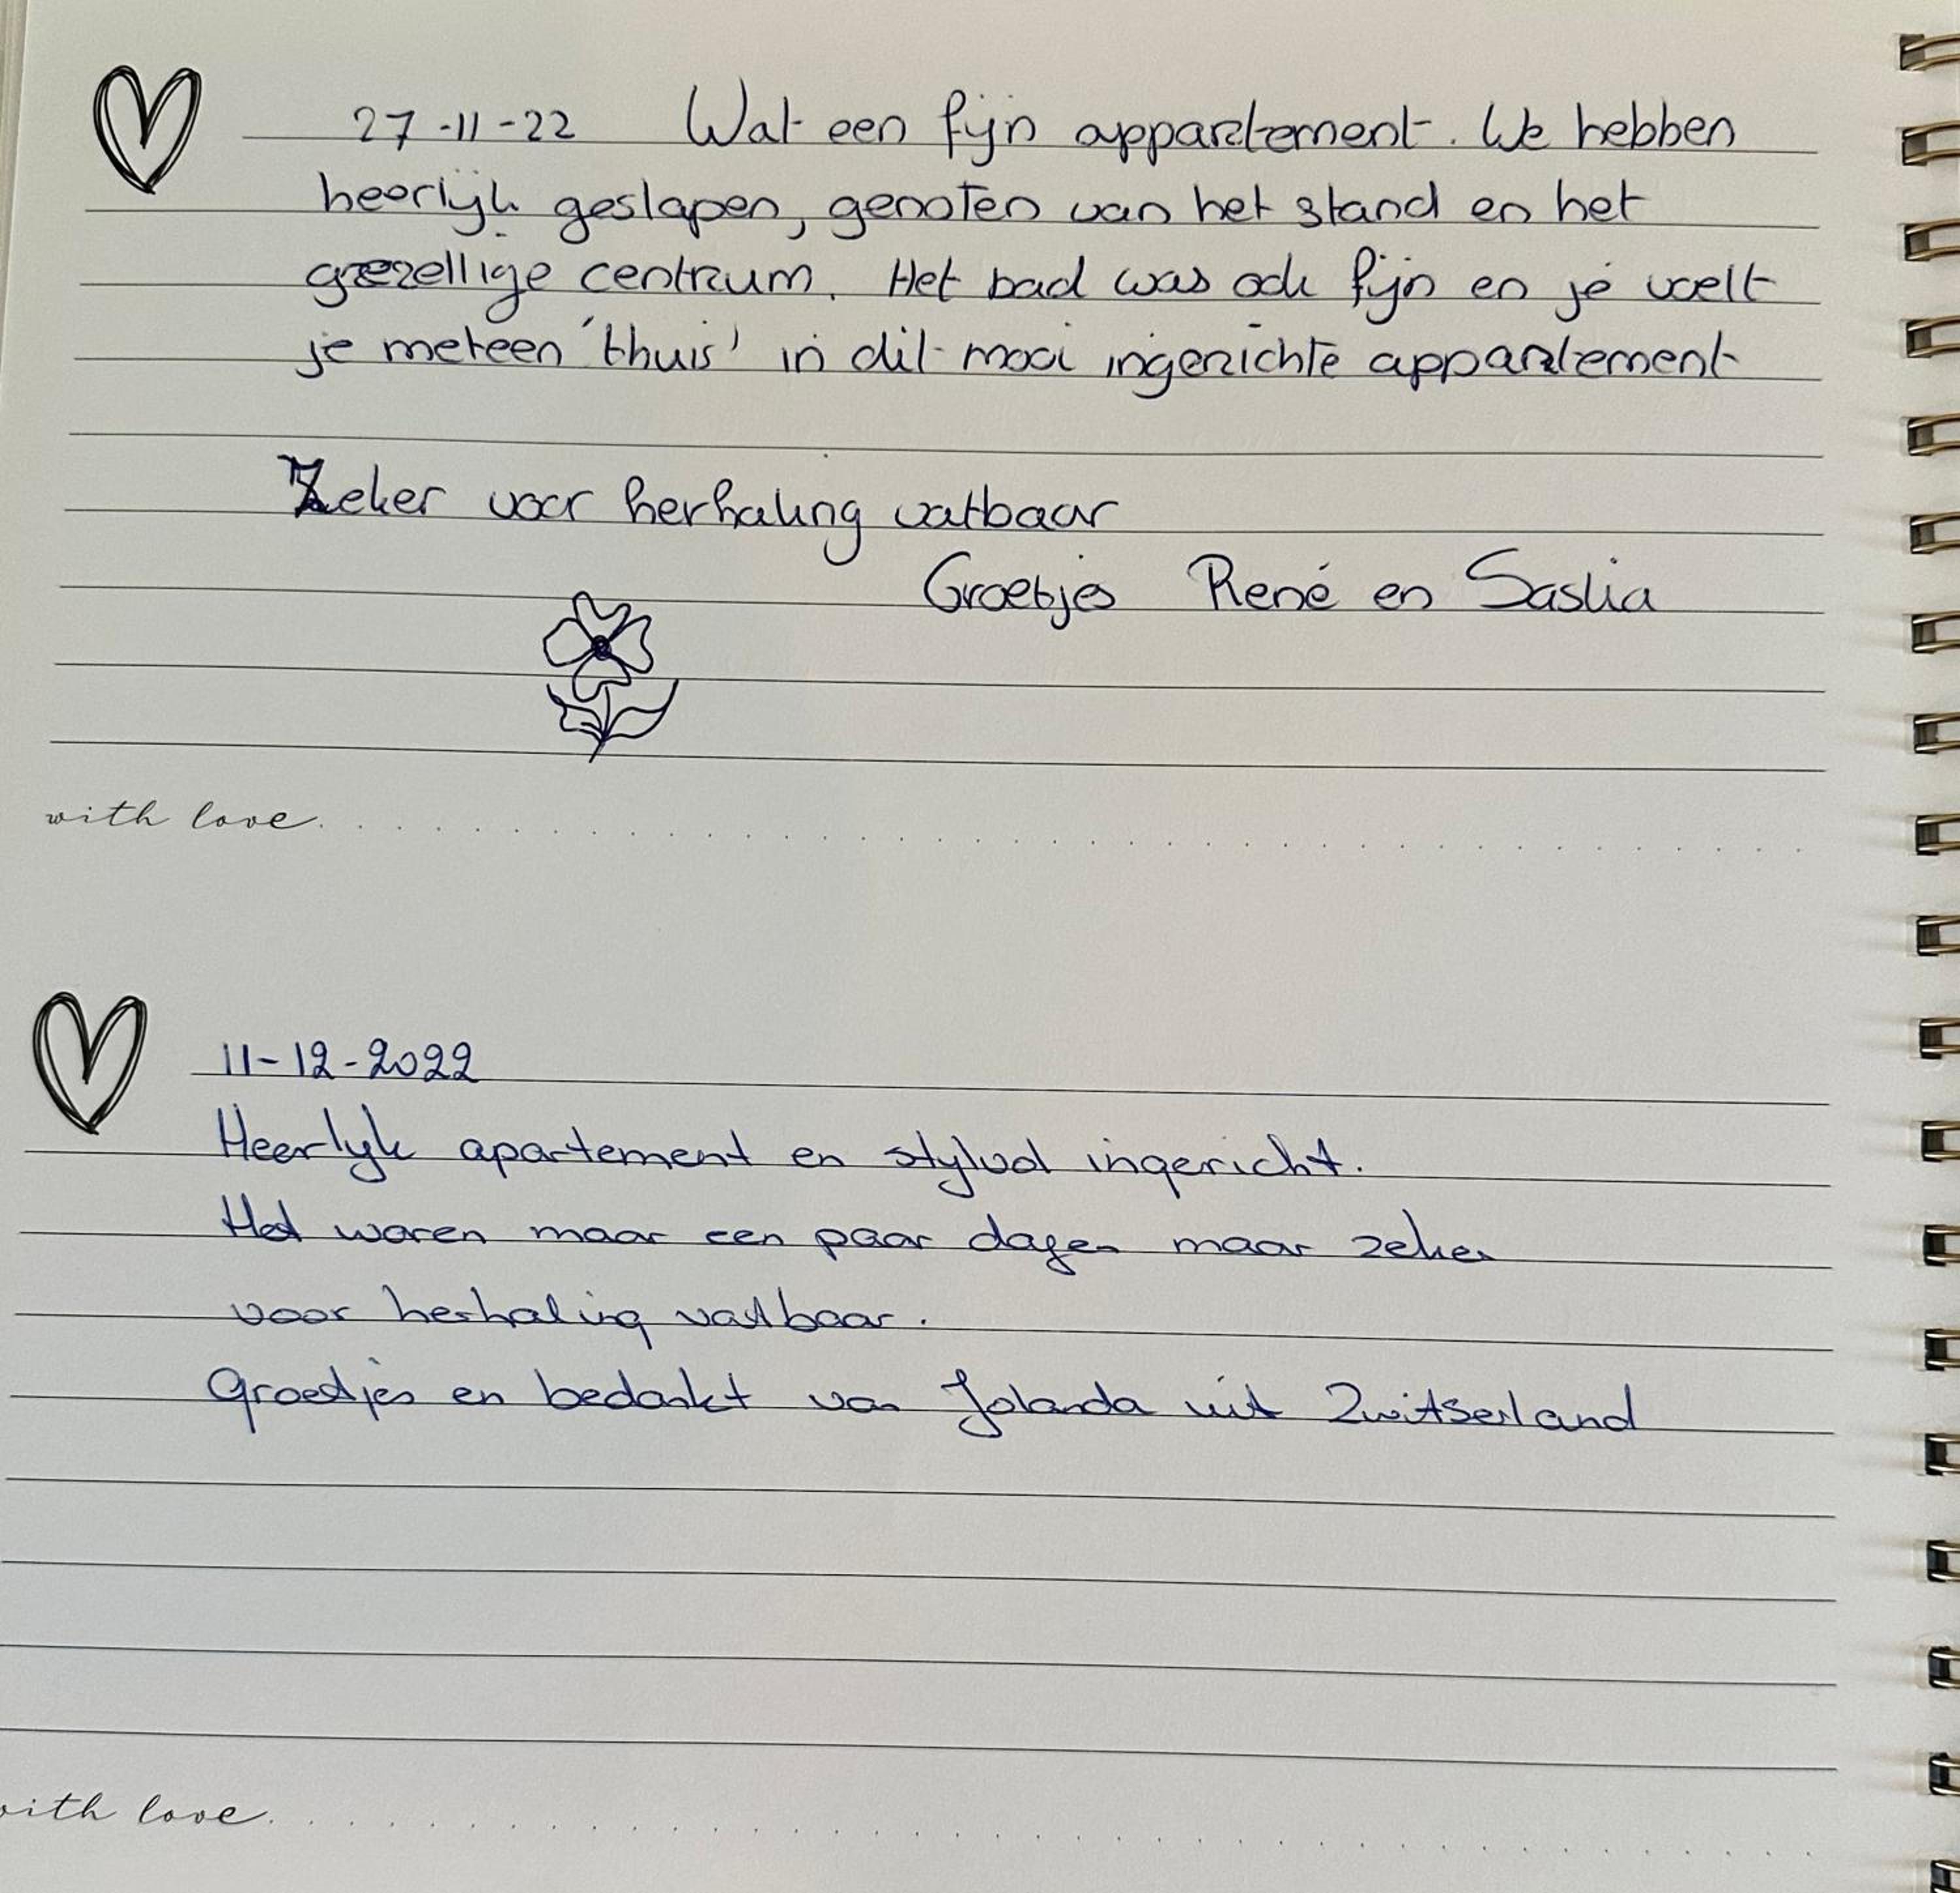 27-11-22 Wat een fijn appartement. We hebben
heerlijk geslapen, genoten van het stand en het
gezellige centrum. Het bad was ook fijn en je voelt
je meteen 'thuis' in dit mooi ingerichte appartement
Zeker voor herhaling vatbaar
Groetjes René en Saskia
with love
11-12-2022
Heerlyk apartement en stylvol ingericht.
Het waren maar een paar dagen maar zeker
voor herhaling vatbaar.
Groetjes en bedankt van Jolanda uit Zwitserland
with love